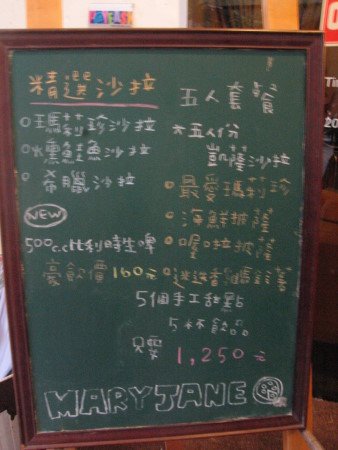 精選沙拉
瑪莉珍沙拉
燻鮭魚沙拉
希臘沙拉
NEW
500c.c比利時生啤
豪飲價160元
五人套餐
*五人份
凱薩沙拉
最愛瑪莉珍
海鮮披薩
喔啦披薩
迷迭香
5個手工甜點
5杯飲品
只要
1,250元
MARY JANE